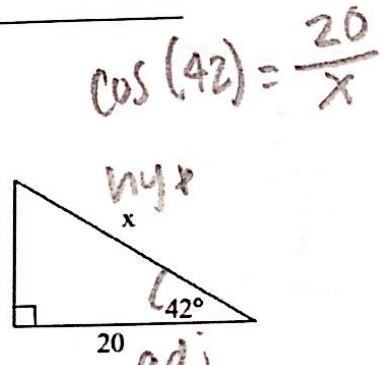 cos(42) = 20/x
hyp
x
42°
20
adj